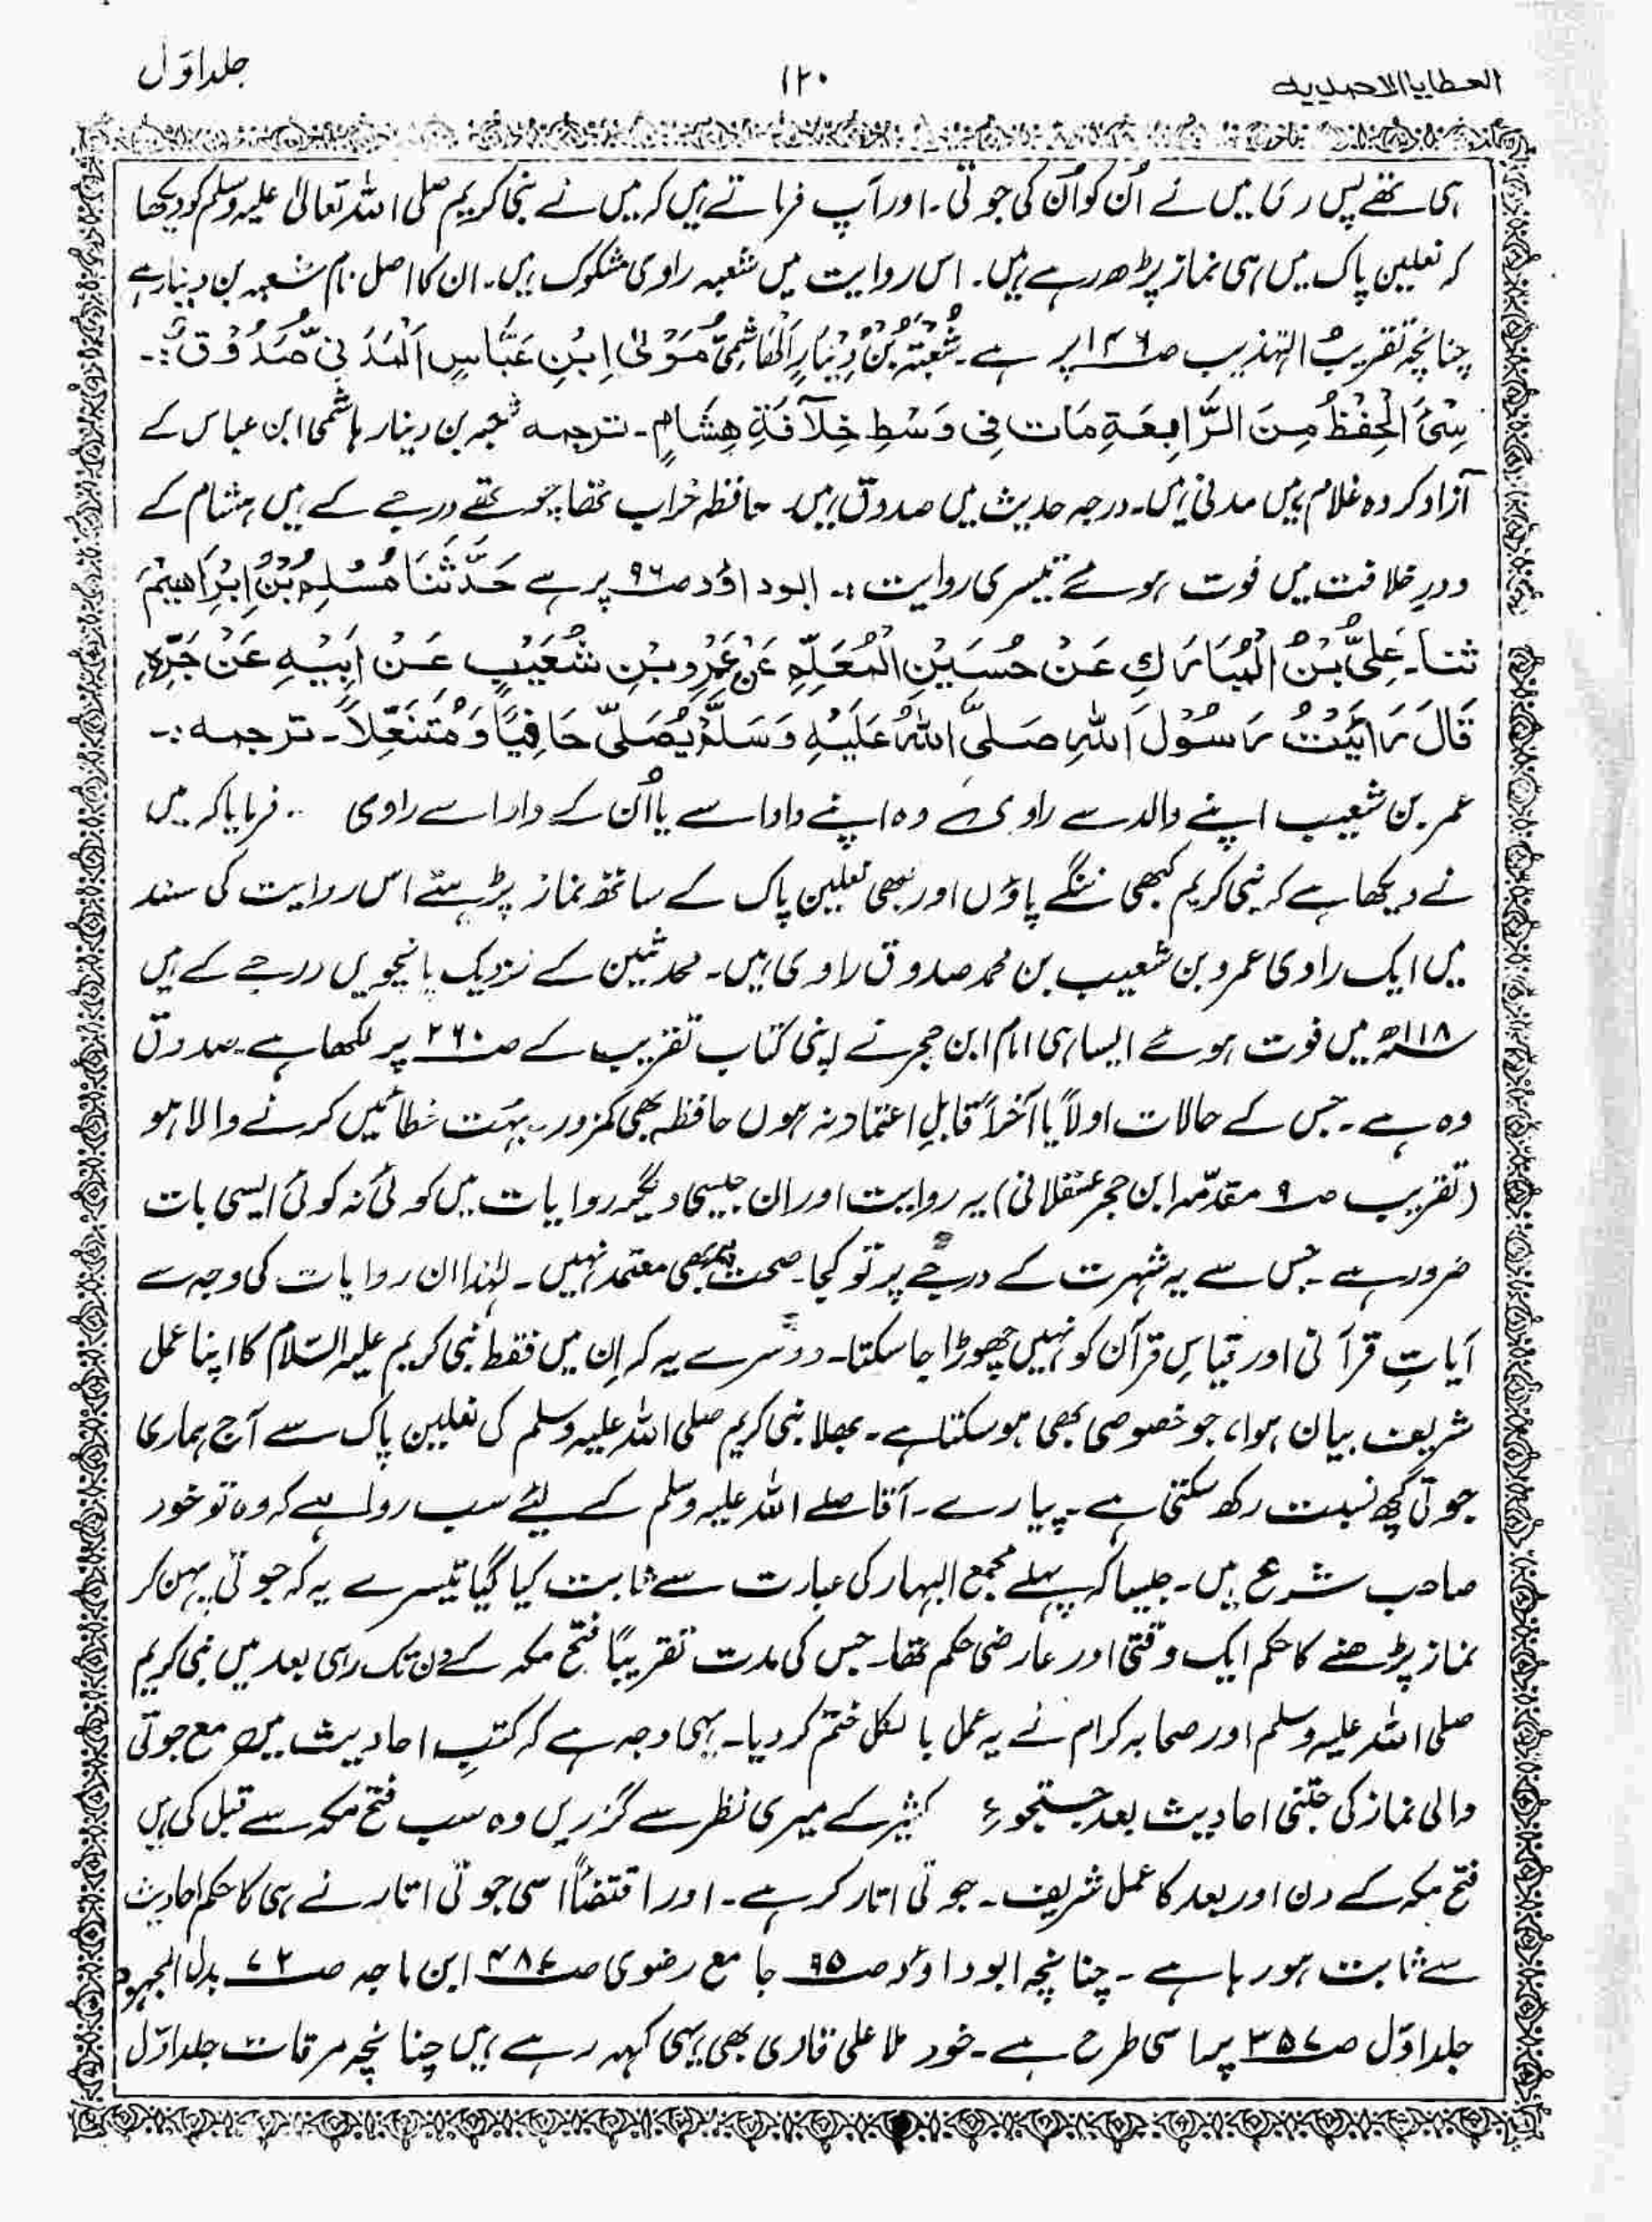 العطایا الاحمدیہ
۱۲۰
جلد اوّل
ہی تھے پس دی میں نے اُن کو اُن کی جوتی۔ اور آپ فرماتے ہیں کہ میں نے نبی کریم صلی اللہ تعالیٰ علیہ وسلم کو دیکھا
کہ نعلین پاک میں ہی نماز پڑھ رہے ہیں۔ اس روایت میں شعبہ راوی مشکوک ہیں۔ ان کا اصل نام شعبہ بن دینار ہے
چنانچہ تقریبُ التہذیب صـ۱۴۶ پر ہے۔ شُعْبَۃُ بْنُ دِیْنَارِ اَلْھَاشِمِیُّ مَوْلیٰ اِبْنِ عَبَّاسٍ اَلْمَدَنِیِّ صُدُوْقٌ :۔
سِیُٔ الْحِفْظُ مِنَ الرَّابِعَۃِ مَاتَ فِی وَسْطِ خِلَافَۃِ ھِشَامٍ۔ ترجمہ شعبہ بن دینار ہاشمی ابن عباس کے
آزاد کردہ غلام ہیں مدنی ہیں۔ درجہ حدیث میں صدوق ہیں۔ حافظہ خراب تھا چوتھے درجے کے ہیں ہشام کے
دورِ خلافت میں فوت ہوئے تیسری روایت :۔ ابوداؤد صـ۹۶ پر ہے حَدَّثَنَا مُسْلِمُ بْنُ اِبْرَاھِیْمَ
ثنا۔ عَلِیُّ بْنُ الْمُبَارَكِ عَنْ حُسَیْنِ الْمُعَلِّمِ عَنْ عَمْرِو بْنِ شُعَیْبٍ عَنْ اَبِیْہِ عَنْ جَدِّہٖ
قَالَ رَاَیْتُ رَسُوْلَ اللہِ صَلَّی اللہُ عَلَیْہِ وَسَلَّمَ یُصَلِّی حَافِیًا وَ مُتَنَعِّلًا۔ ترجمہ :۔
عمر بن شعیب اپنے والد سے راوی وہ اپنے دادا سے یا اُن کے دادا سے راوی .. فرمایا کہ میں
نے دیکھا ہے کہ نبی کریم کبھی ننگے پاؤں اور کبھی نعلین پاک کے ساتھ نماز پڑہتے اس روایت کی سند
میں ایک راوی عمرو بن شعیب بن محمد صدوق راوی ہیں۔ محدثین کے نزدیک پانچویں درجے کے ہیں
۱۱۸ھ میں فوت ہوئے ایسا ہی امام ابن حجر نے اپنی کتاب تقریب کے صـ۲۶۰ پر لکھا ہے۔ صدوق
وہ ہے۔ جس کے حالات اولاً یا آخراً قابلِ اعتماد نہ ہوں حافظہ بھی کمزور۔ بہت خطائیں کرنے والا ہو
(تقریب صـ۹ مقدّمہ ابن حجر عسقلانی) یہ روایت اور ان جیسی دیگر روایات میں کوئی نہ کوئی ایسی بات
ضرور ہے۔ جس سے یہ شہرت کے درجے پر تو کجا۔ صحت بھی معتمد نہیں۔ لہٰذا ان روایات کی وجہ سے
آیاتِ قرآنی اور قیاسِ قرآن کو نہیں چھوڑا جا سکتا۔ دوسرے یہ کہ اِن میں فقط نبی کریم علیہ السّلام کا اپنا عمل
شریف بیان ہوا، جو خصوصی بھی ہو سکتا ہے۔ بھلا نبی کریم صلی اللہ علیہ وسلم کی نعلین پاک سے آج ہماری
جوتی کچھ نسبت رکھ سکتی ہے۔ پیارے۔ آقا صلے اللہ علیہ وسلم کے لیئے سب روا ہے کہ وہ تو خود
صاحب شرع ہیں۔ جیسا کہ پہلے مجمع البہار کی عبارت سے ثابت کیا گیا تیسرے یہ کہ جوتی پہن کر
نماز پڑھنے کا حکم ایک وقتی اور عارضی حکم تھا۔ جس کی مدت تقریبًا فتح مکہ کے دن تک رہی بعد میں نبی کریم
صلی اللہ علیہ وسلم اور صحابہ کرام نے یہ عمل بالکل ختم کر دیا۔ یہی وجہ ہے کہ کتبِ احادیث میں مع جوتی
والی نماز کی جتنی احادیث بعد جستجوءِ کثیر کے میری نظر سے گزریں وہ سب فتح مکہ سے قبل کی ہیں
فتح مکہ کے دن اور بعد کا عمل شریف۔ جوتی اتار کر ہے۔ اور اقتضاً اسی جوتی اتارنے ہی کا حکم احادیث
سے ثابت ہو رہا ہے۔ چنانچہ ابوداؤد صـ۹۵ جامع رضوی صـ۴۸۷ ابن ماجہ صـ۷۲ بدل المجہود
جلد اوّل صـ۳۵۷ پر اسی طرح ہے۔ خود ملا علی قاری بھی یہی کہہ رہے ہیں چنانچہ مرقات جلد اوّل